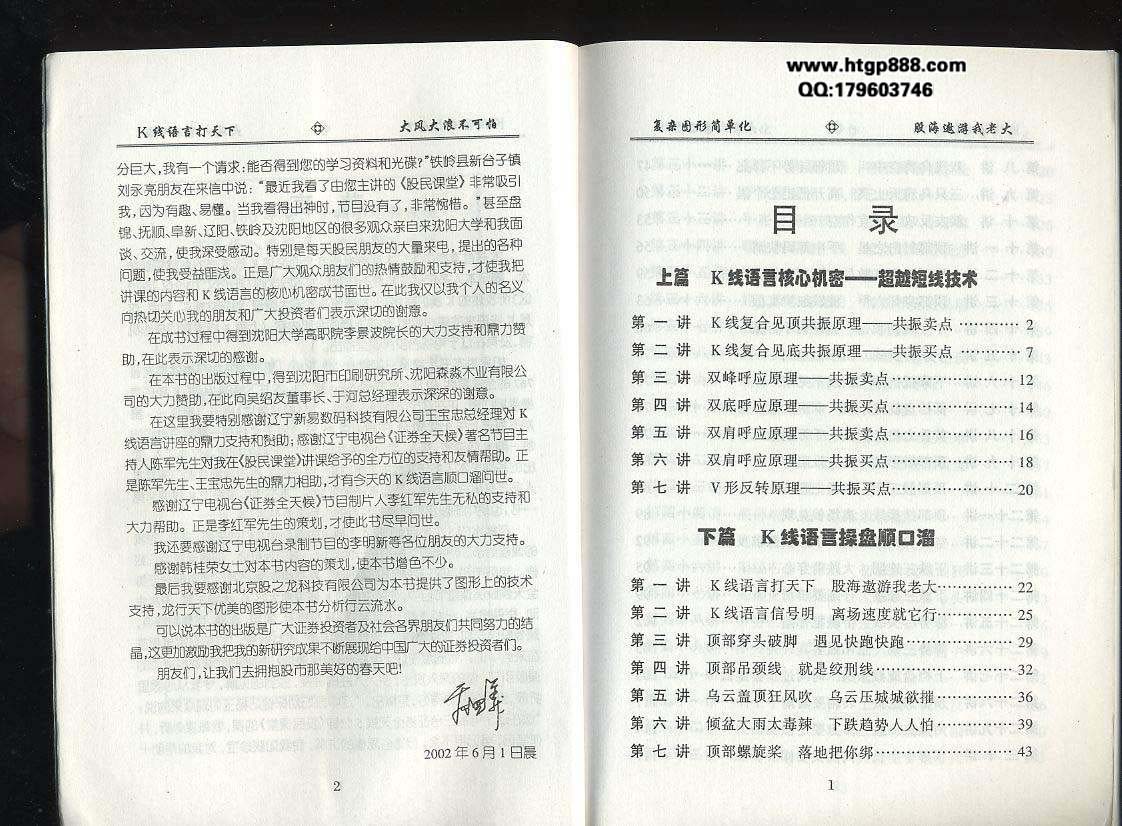 www.htgp888.com
QQ:179603746
K线语言打天下 大风大浪不可怕
分巨大,我有一个请求:能否得到您的学习资料和光碟?”铁岭县新台子镇
刘永亮朋友在来信中说:“最近我看了由您主讲的《股民课堂》非常吸引
我,因为有趣、易懂。当我看得出神时,节目没有了,非常惋惜。”甚至盘
锦、抚顺、阜新、辽阳、铁岭及沈阳地区的很多观众亲自来沈阳大学和我面
谈、交流,使我深受感动。特别是每天股民朋友的大量来电,提出的各种
问题,使我受益匪浅。正是广大观众朋友们的热情鼓励和支持,才使我把
讲课的内容和K线语言的核心机密成书面世。在此我仅以我个人的名义
向热切关心我的朋友和广大投资者们表示深切的谢意。
在成书过程中得到沈阳大学高职院李景波院长的大力支持和鼎力赞
助,在此表示深切的感谢。
在本书的出版过程中,得到沈阳市印刷研究所、沈阳森淼木业有限公
司的大力赞助,在此向吴绍友董事长、于河总经理表示深深的谢意。
在这里我要特别感谢辽宁新易数码科技有限公司王宝忠总经理对K
线语言讲座的鼎力支持和赞助;感谢辽宁电视台《证券全天候》著名节目主
持人陈军先生对我在《股民课堂》讲课给予的全方位的支持和友情帮助。正
是陈军先生、王宝忠先生的鼎力相助,才有今天的K线语言顺口溜问世。
感谢辽宁电视台《证券全天候》节目制片人李红军先生无私的支持和
大力帮助。正是李红军先生的策划,才使此书尽早问世。
我还要感谢辽宁电视台录制节目的李明新等各位朋友的大力支持。
感谢韩桂荣女士对本书内容的策划,使本书增色不少。
最后我要感谢北京股之龙科技有限公司为本书提供了图形上的技术
支持,龙行天下优美的图形使本书分析行云流水。
可以说本书的出版是广大证券投资者及社会各界朋友们共同努力的结
晶,这更加激励我把我的新研究成果不断展现给中国广大的证券投资者们。
朋友们,让我们去拥抱股市那美好的春天吧!
2002年6月1日晨
2
复杂图形简单化 股海遨游我老大
目 录
上篇 K线语言核心机密——超越短线技术
第一讲 K线复合见顶共振原理——共振卖点 ………… 2
第二讲 K线复合见底共振原理——共振买点 ………… 7
第三讲 双峰呼应原理——共振卖点………………… 12
第四讲 双底呼应原理——共振买点………………… 14
第五讲 双肩呼应原理——共振卖点………………… 16
第六讲 双肩呼应原理——共振买点………………… 18
第七讲 V形反转原理——共振买点………………… 20
下篇 K线语言操盘顺口溜
第一讲 K线语言打天下 股海遨游我老大………… 22
第二讲 K线语言信号明 离场速度就它行………… 25
第三讲 顶部穿头破脚 遇见快跑快跑……………… 29
第四讲 顶部吊颈线 就是绞刑线…………………… 32
第五讲 乌云盖顶狂风吹 乌云压城城欲摧………… 36
第六讲 倾盆大雨太毒辣 下跌趋势人人怕………… 39
第七讲 顶部螺旋桨 落地把你绑…………………… 43
1